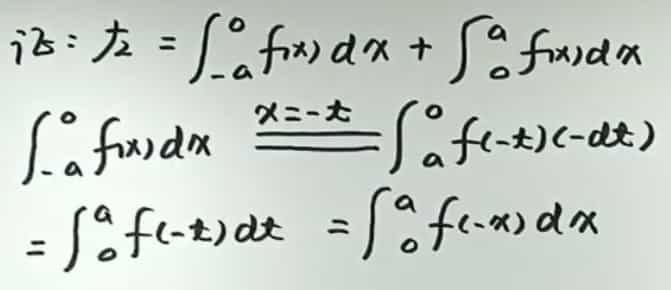 证：左 = ∫_{-a}^{0} f(x)dx + ∫_{0}^{a} f(x)dx
∫_{-a}^{0} f(x)dx \xlongequal{x=-t} ∫_{a}^{0} f(-t)(-dt)
= ∫_{0}^{a} f(-t)dt = ∫_{0}^{a} f(-x)dx